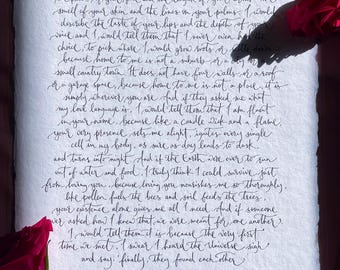 smell of your skin and the lines on your palms. I would
describe the taste of your lips and the depth of your
voice and I would tell them that I never even had the
choice to pick where I would grow roots or settle down
because home to me is not a suburb or a big city or
small country town. It does not have four walls or a roof
or a garage space, because home to me is not a place, it is
simply wherever you are. And if they asked me what
my love language is, I would tell them that I am fluent
in your name because like a candle wick and a flame
your very presence sets me alight, ignites every single
cell in my body, as sure as day leads to dark
and turns into night. And if the Earth were ever to run
out of water and food, I truly think I could survive just
from loving you, because loving you nourishes me so thoroughly,
like pollen fuels the bees and soil feeds the trees,
your existence alone gives me all I need. And if someone
ever asked how I knew that we were meant for one another,
I would tell them it is because the very first
time we met, I swear I heard the Universe sigh
and say: 'finally, they found each other'.